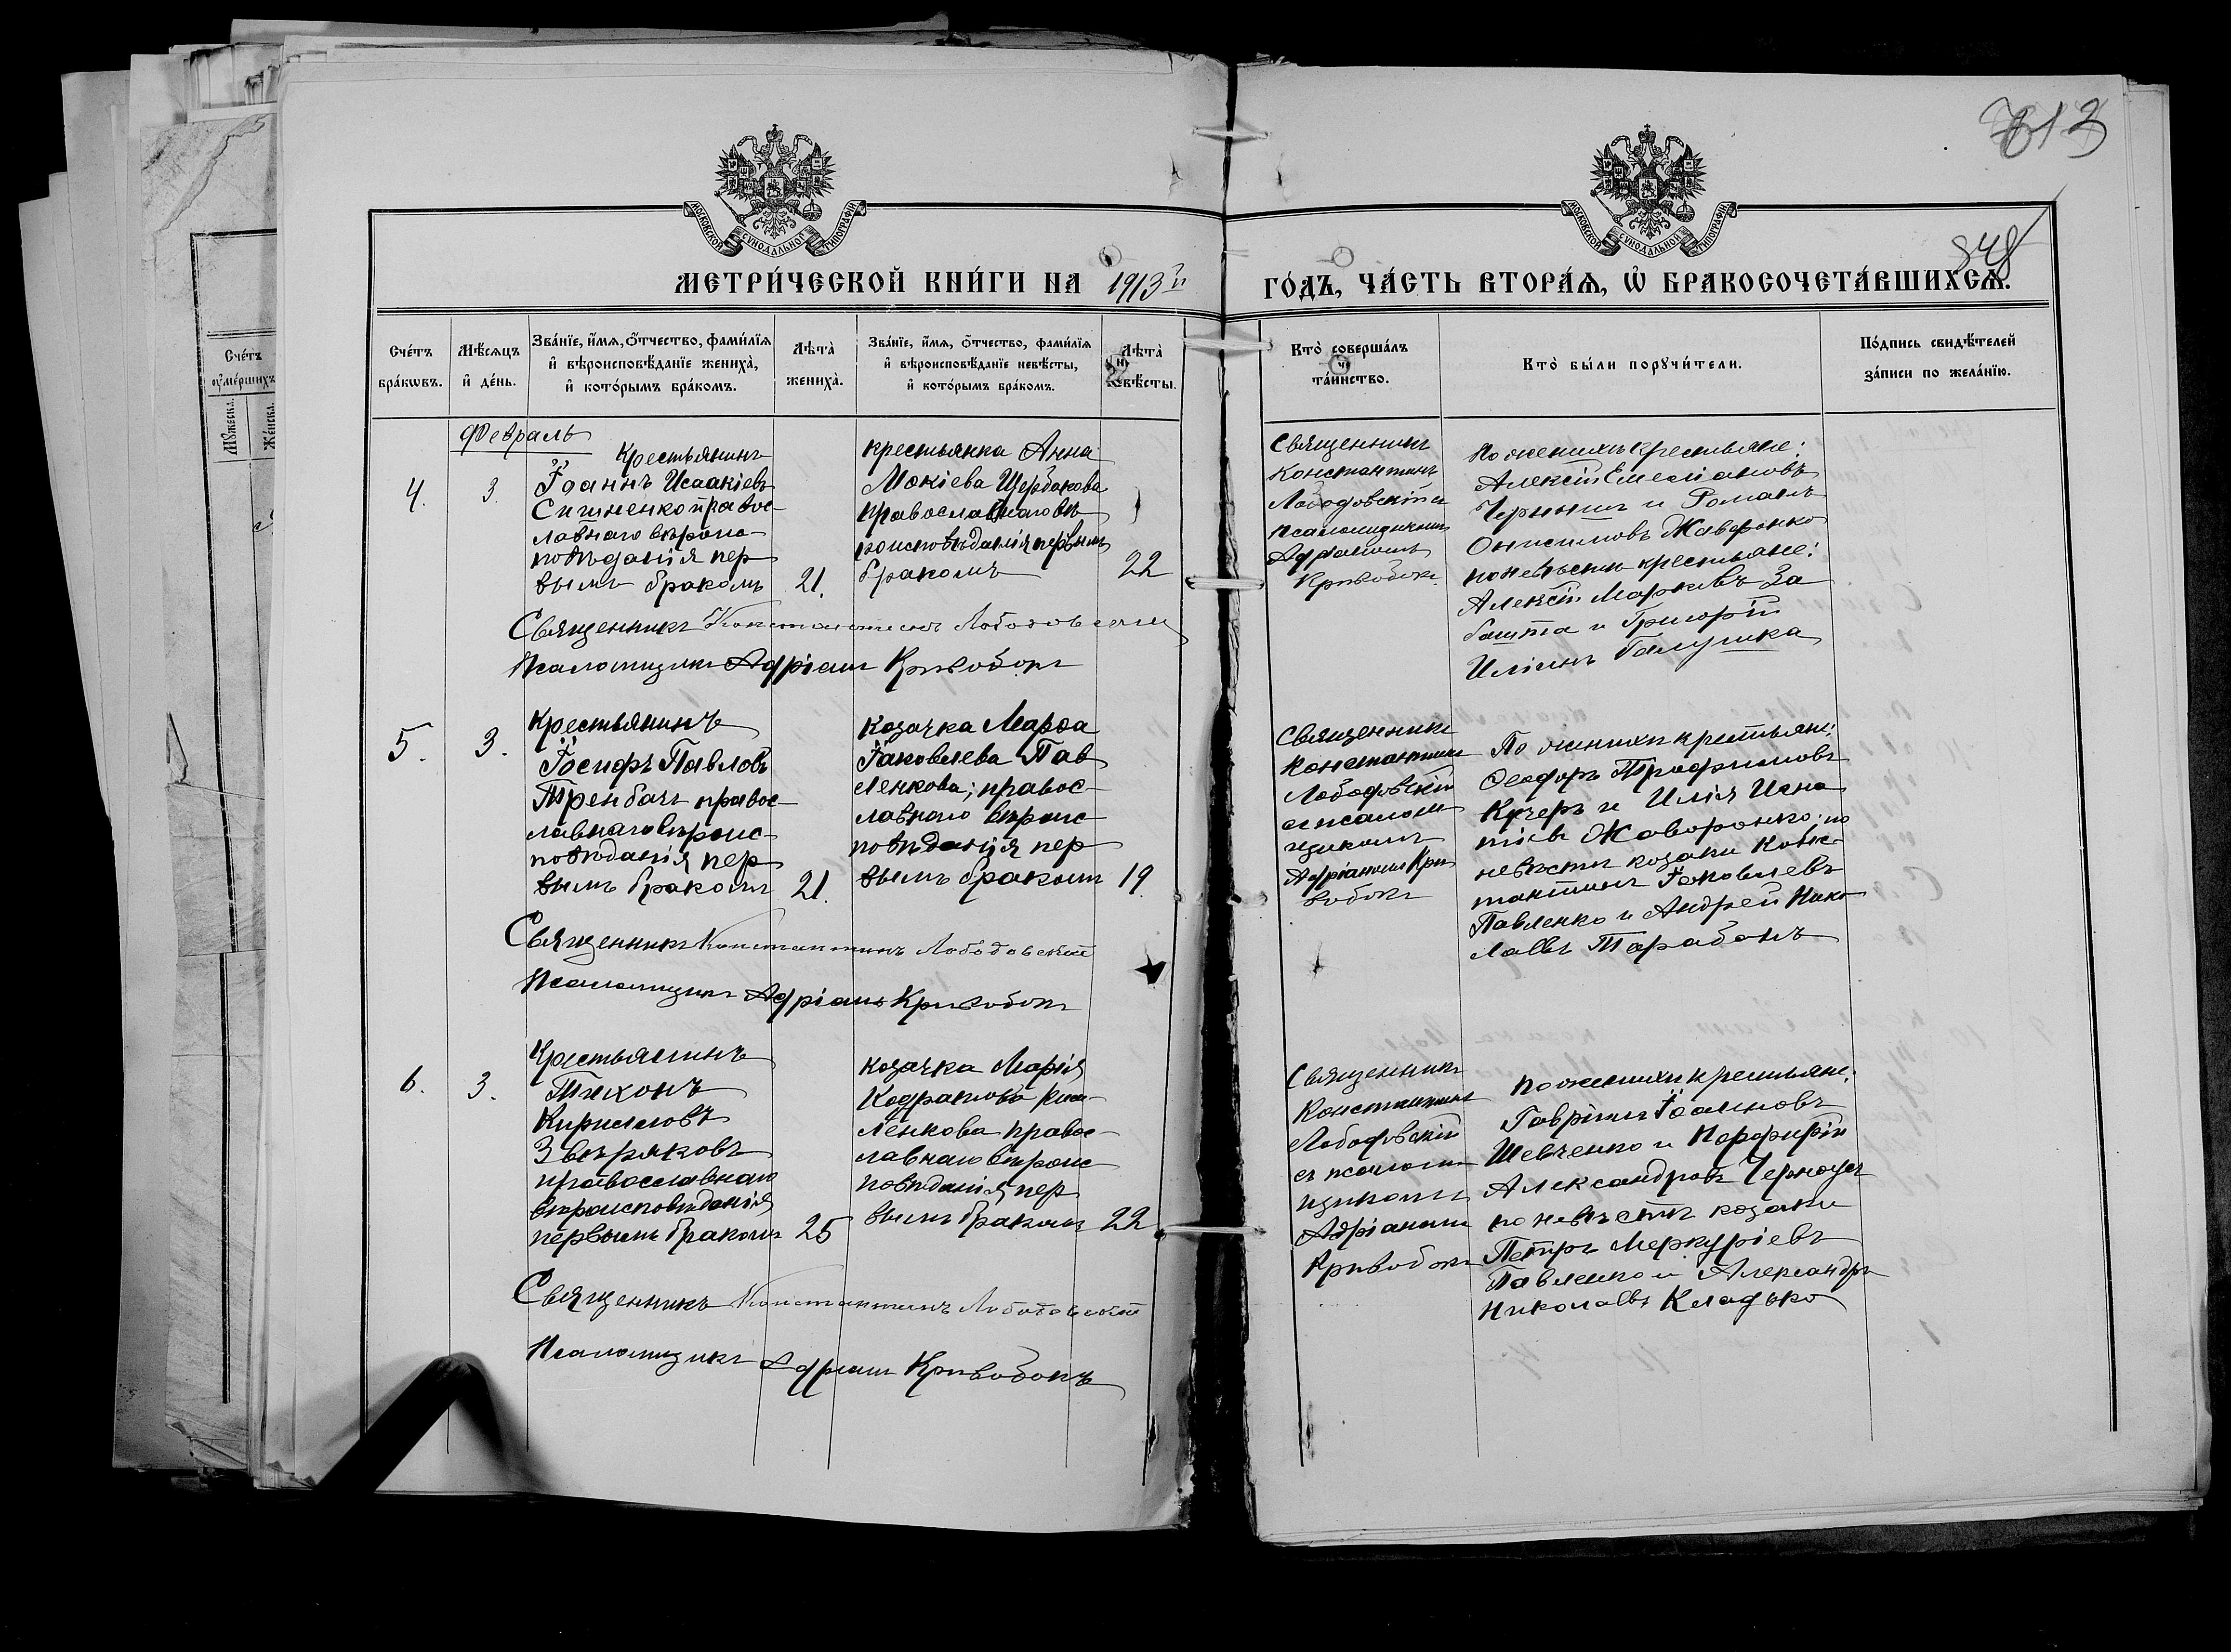 813
848
МОСКОВСКОЙ СѴНОДАЛЬНОЙ ТИПОГРАФІИ
МОСКОВСКОЙ СѴНОДАЛЬНОЙ ТИПОГРАФІИ
МЕТРИ́ЧЕСКОЙ КНИ́ГИ НА 1913й ГО́ДЪ, ЧА́СТЬ ВТОРА́Я, Ѡ҆ БРАКОСОЧЕТА́ВШИХСѦ.
Сче́тъ
ᲂу҆ме́ршихъ
Мꙋ́жеска.
Же́нска.
Сче́тъ
бра́кѡвъ.
Мѣ́сяцъ
и҆ де́нь.
Зва́нїе, и҆́мѧ, ѻ҆́тчество, фами́лїѧ
и҆ вѣроисповѣ́данїе жениха̀,
и҆ кото́рымъ бра́комъ.
Лѣта̀
жениха̀.
Зва́нїе, и҆́мѧ, ѻ҆́тчество, фами́лїѧ
и҆ вѣроисповѣ́данїе невѣ́сты,
и҆ кото́рымъ бра́комъ.
Лѣта̀
невѣ́сты.
Кто̀ соверша́лъ
та́инство.
Кто̀ бы́ли порꙋчи́тели.
По́дпись свидѣ́телей
за́писи по жела́нїю.
Февраль
4.
3.
Крестьянинъ
Іоаннъ Исаакіевъ
православ-
наго вѣроис-
повѣданія пер
вымъ бракомъ
21.
крестьянка Анна
Мокіева Щербакова
православнаго вѣ
роисповѣданія первымъ
бракомъ
22
Священникъ
Константинъ
Лободовскій съ
псаломщикомъ
Адріаномъ
Кривобокъ.
По женихѣ крестьяне:
Алексій Емеліановъ
и Романъ
Онисимовъ Жаворонко
по невѣстѣ крестьяне:
Алексій Марковъ За
башта и Григорій
Иліинъ Галушка
Священникъ Константинъ Лободовскій
Псаломщикъ Адріанъ Кривобокъ
5.
3.
Крестьянинъ
Іосифъ Павловъ
Тренбачъ правос-
лавнаго вѣроис-
повѣданія пер
вымъ бракомъ
21.
козачка Марѳа
Іаковлева Пав
ленкова; правос-
лавнаго вѣроис
повѣданія пер
вымъ бракомъ
19.
Священникъ
Константинъ
Лободовскій
съ псалом
щикомъ
Адріаномъ Кри
вобокъ
По женихѣ крестьяне:
Ѳеодоръ Трофимовъ
Кучеръ и Илія Игна
тіевъ Жаворонко; по
невѣстѣ козаки Конс-
тантинъ Іаковлевъ
Павленко и Андрей Нико
лаевъ Тарабанъ
Священникъ Константинъ Лободовскій
Псаломщикъ Адріанъ Кривобокъ
6.
3.
Крестьянинъ
Тихонъ
Кирилловъ
Звѣряковъ
православнаго
вѣроисповѣданія
первымъ бракомъ
25
козачка Марія
Кодратова
ленкова правос-
лавнаго вѣроис
повѣданія пер
вымъ бракомъ
22
Священникъ
Константинъ
Лободовскій
съ псалом
щикомъ
Адріаномъ
Кривобокъ
по женихѣ крестьяне:
Гавріилъ Іоанновъ
Шевченко и Порфирій
Александровъ Черноусъ
по невѣстѣ козаки
Петръ Меркуріевъ
Павленко и Александръ
Николаевъ Кладько
Священникъ Константинъ Лободовскій
Псаломщикъ Адріанъ Кривобокъ